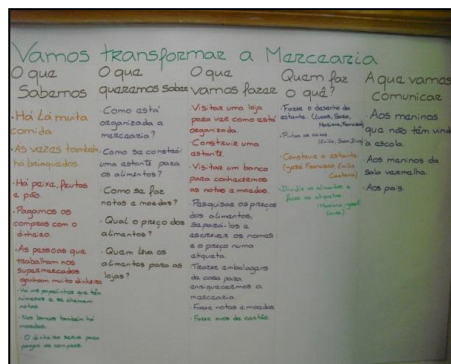 Vamos transformar a Mercearia
O que
Sabemos
• Há Lá muita
comida.
• As vezes também
há brinquedos.
• Há peixe, frutas
e pão.
• Pagamos as
compras com o
dinheiro.
• As pessoas que
trabalham nos
supermercados
ganham muito dinheiro
• Há uns papelinhos que têm
números e se chamam
notas.
• Nos bancos também há
moedas.
O dinheiro serve para
pagar as compras
O que
queremos saber
• Como está
organizada a
mercearia?
• Como se constrói
uma estante para
os alimentos?
• Como se faz
notas e moedas?
• Qual o preço dos
alimentos?
• Quem leva os
alimentos para as
lojas?
O que
vamos fazer
• Visitar uma loja
para ver como está
organizada.
• Construir uma
estante.
• Visitar um banco
para conhecermos
as notas e moedas.
• Pesquisar os preços
dos alimentos,
separá-los e
escrever os nomes
e o preço numa
etiqueta.
• Trazer embalagens
de casa para
enriquecermos a
mercearia.
• Fazer notas e moedas
• Fazer ovos de cartão
Quem faz
o quê?
• Fazer o desenho da
estante
• Pintar as caixas
• Construir a estante
• Dividir os alimentos e
fazer as etiquetas
A que vamos
comunicar
• Aos meninos
que não têm vindo
à escola.
• Aos meninos da
sala vermelha.
• Aos pais.